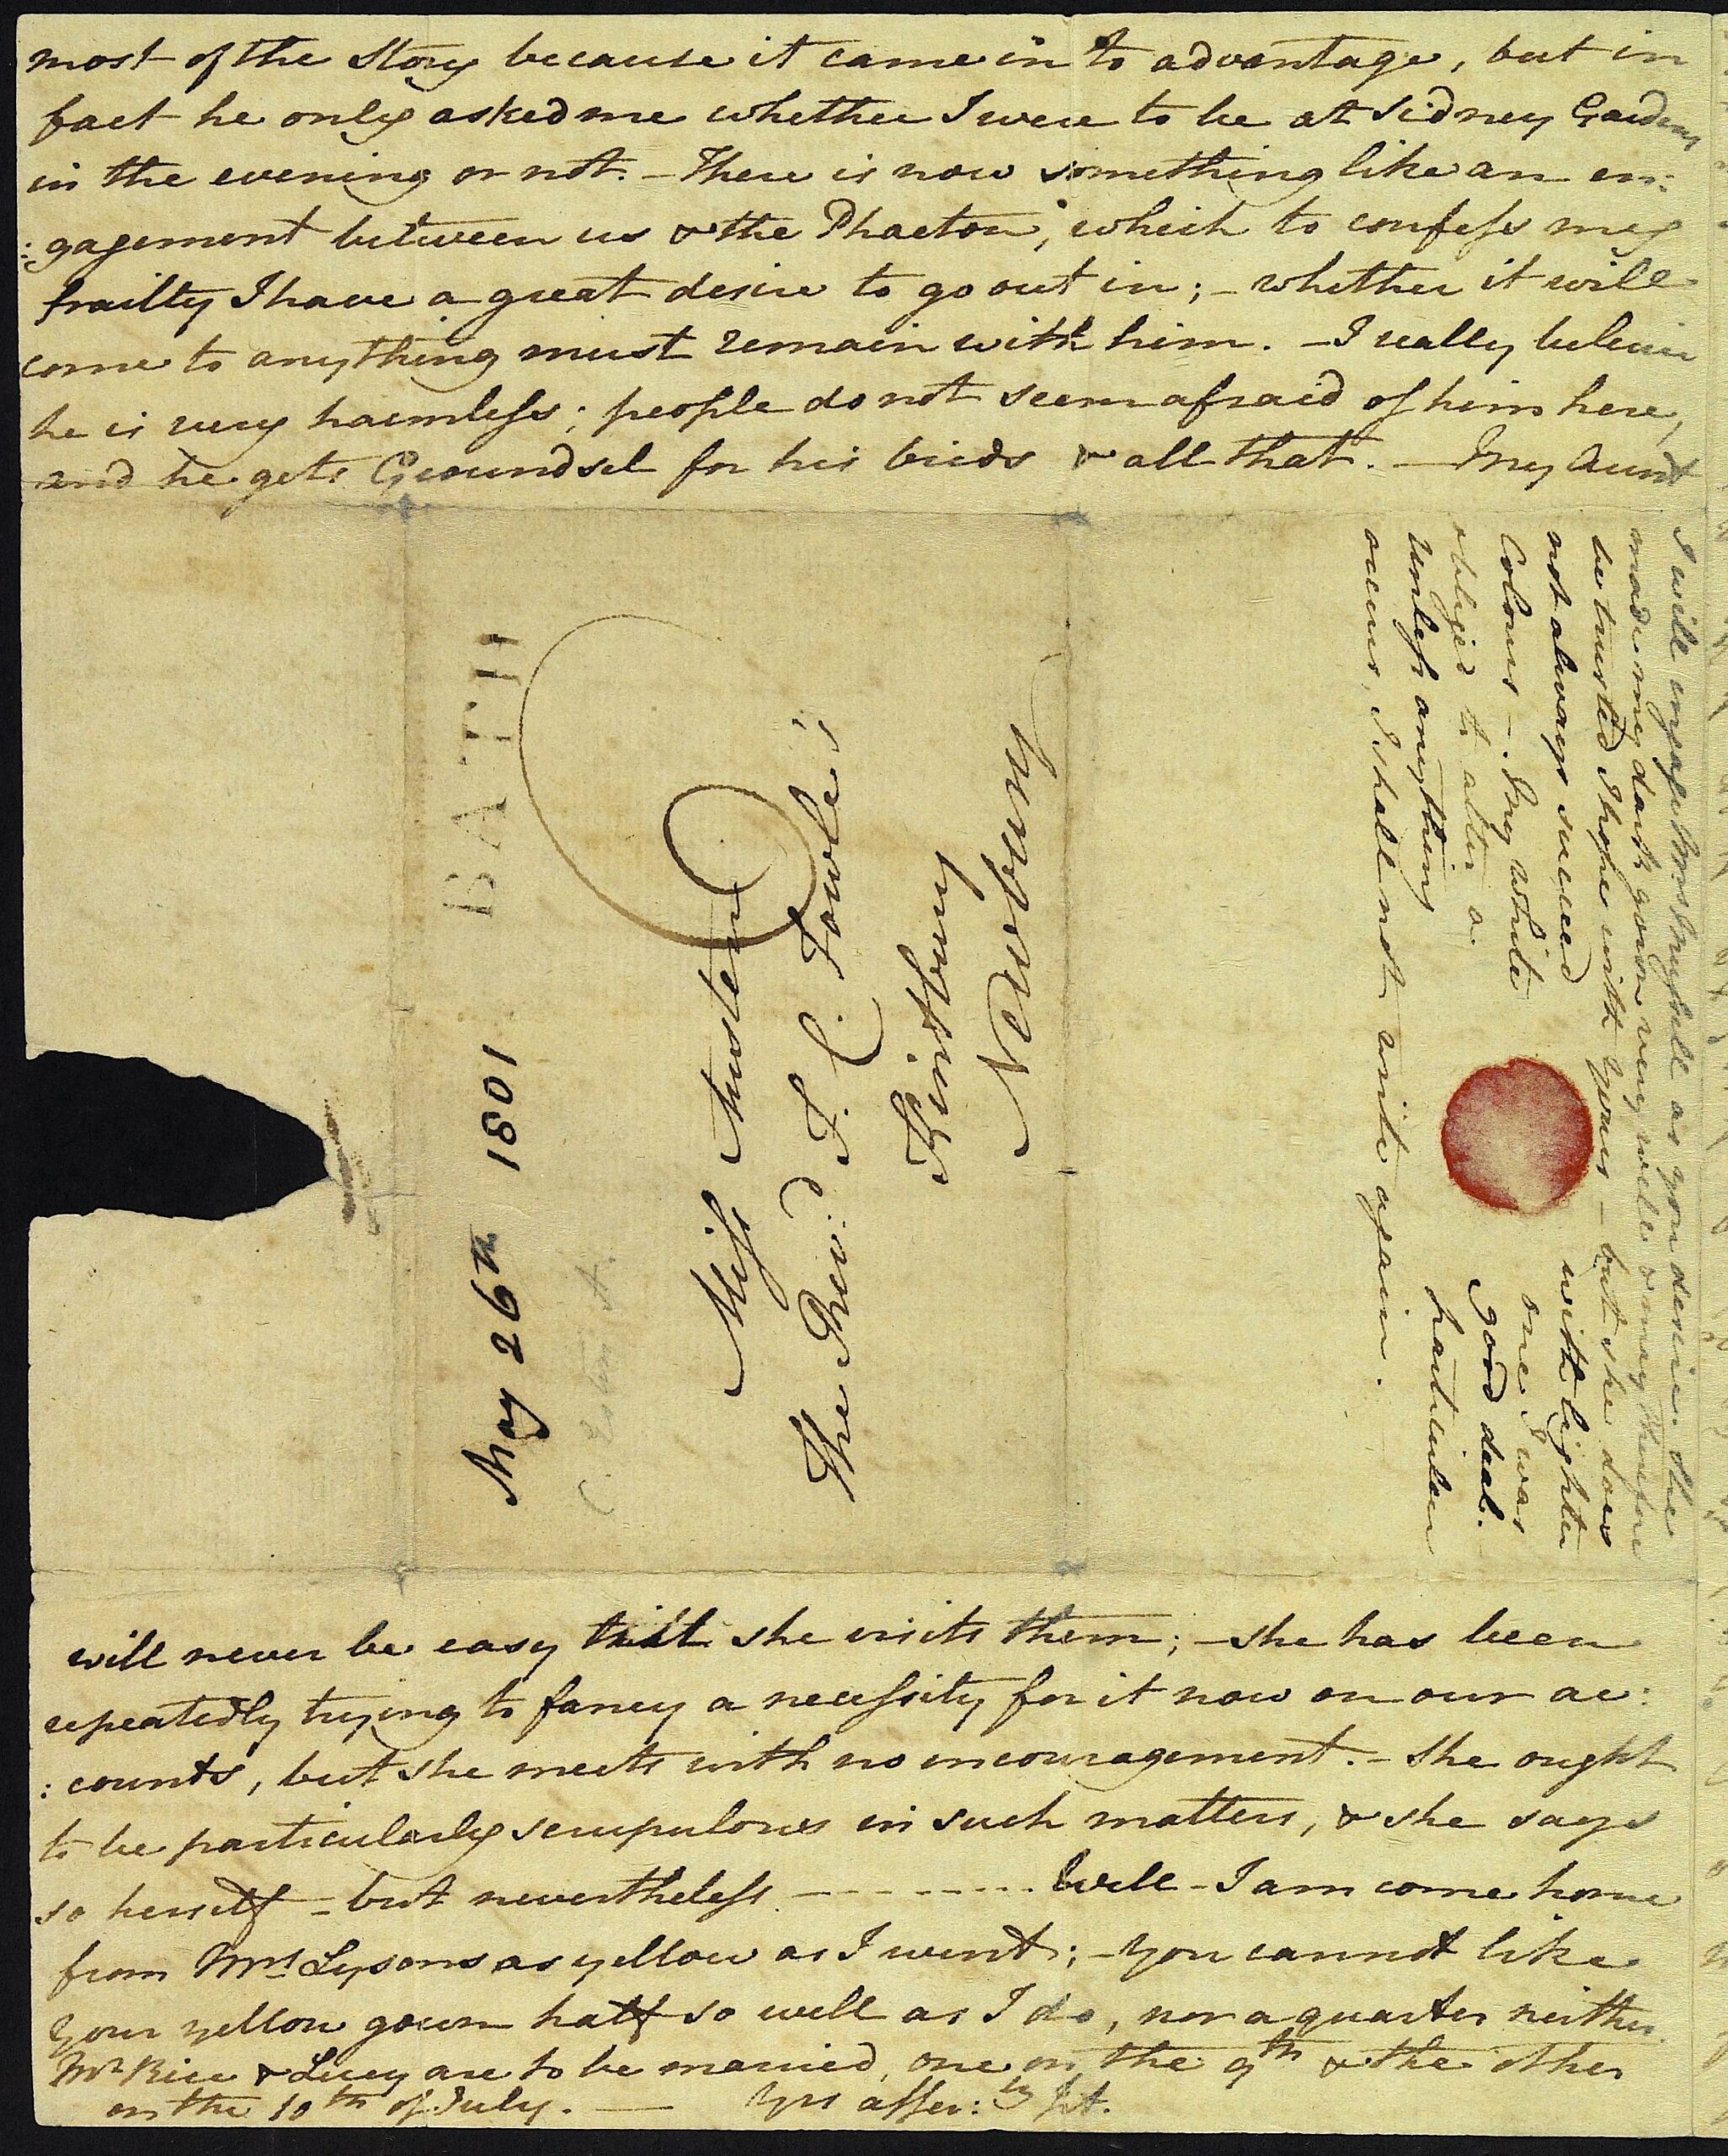 most of the Story because it came in to advantage, but in
fact he only asked me whether I were to be at Sidney Gardens
in the evening or not. – There is now something like an en:
:gagement between us & the Phaeton, which to confess my
frailty I have a great desire to go out in; – whether it will
come to anything must remain with him. – I really beleive
he is very harmless; people do not seem afraid of him here,
and he gets Groundsel for his birds & all that. – My Aunt
I will engage Mrs Mussell as you desire. She
made my dark gown very well & may therefore
be trusted I hope with Yours – but she does
not always succeed with lighter
Colours –. My white one I was
obliged to alter a good deal.
Unless anything particular
occurs, I shall not write again.
BATH
May 26th 1801
Miss Austen
The Revd. F. C. Fowle's
Kintbury
Newbury
will never be easy till she visits them; – she has been
repeatedly trying to fancy a necessity for it now on our ac:
:counts, but she meets with no encouragement. – She ought
to be particularly scrupulous in such matters, & she says
so herself – but nevertheless – – – – – – – Well – I am come home
from Mrs. Lysons as yellow as I went; – You cannot like
your yellow gown half so well as I do, nor a quarter neither.
Mr Rice & Lucy are to be married, one on the 9th & the other
on the 10th of July. — Yrs affec:ly JA.